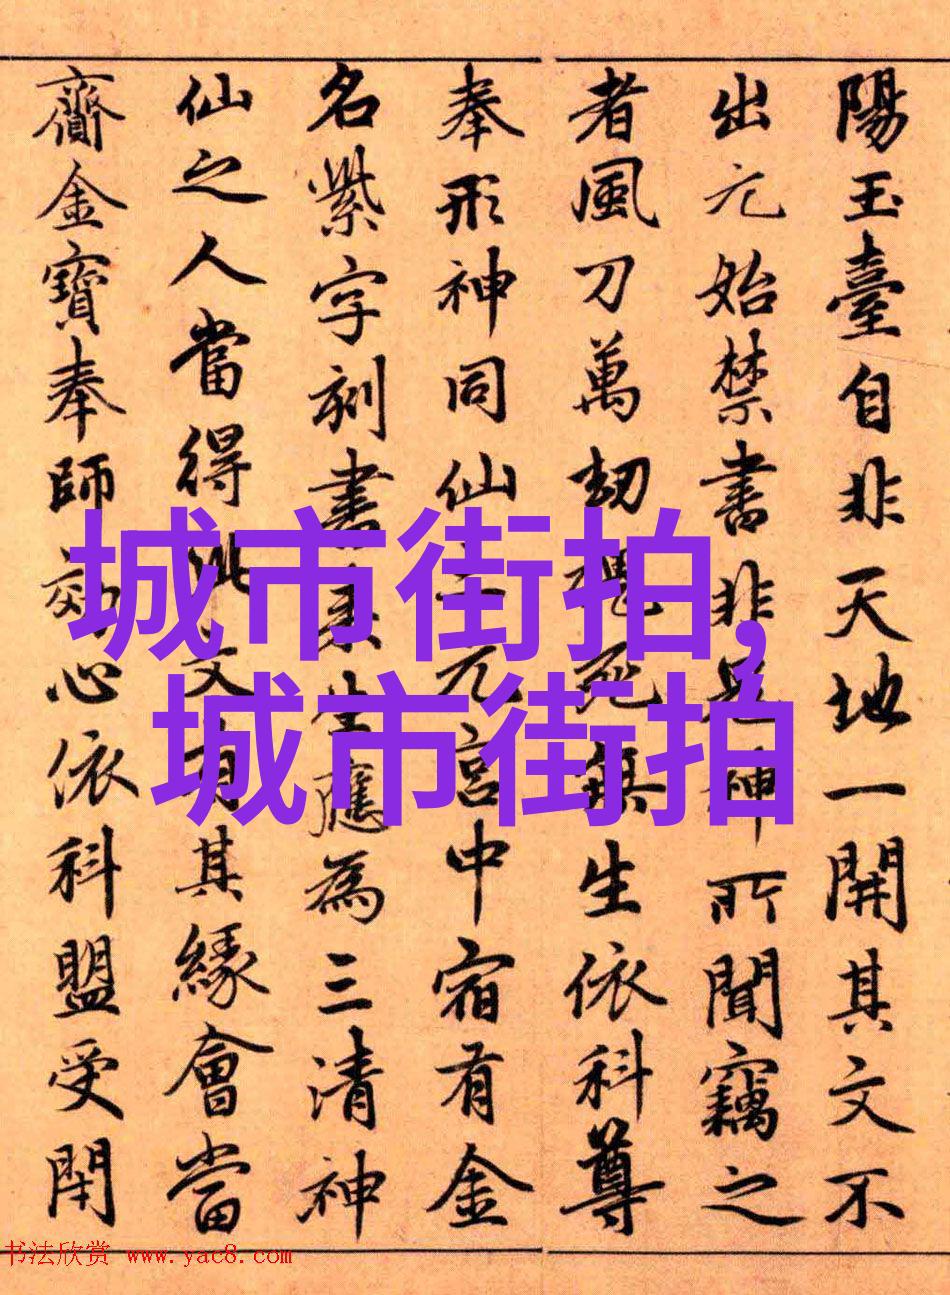 陽玉臺自非天地一開其文不
出元始禁書非神所聞竊之
者風刀萬劫死無生依科尊
奉形神同仙元宮中宿有金
名紫字刻書生應為三清神
仙之人當得此文有其緣會當
齎金寶奉師効心依科盟受閇
城市街拍,
城市街拍
书法欣赏 www.yac8.com